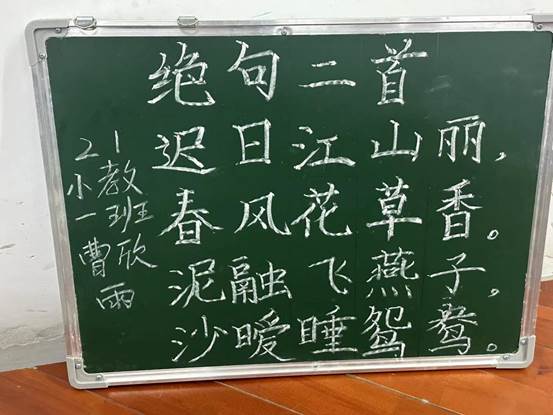 绝句二首
迟日江山丽，
春风花草香。
泥融飞燕子，
沙暖睡鸳鸯。
21
小教
一班
曹欣
雨